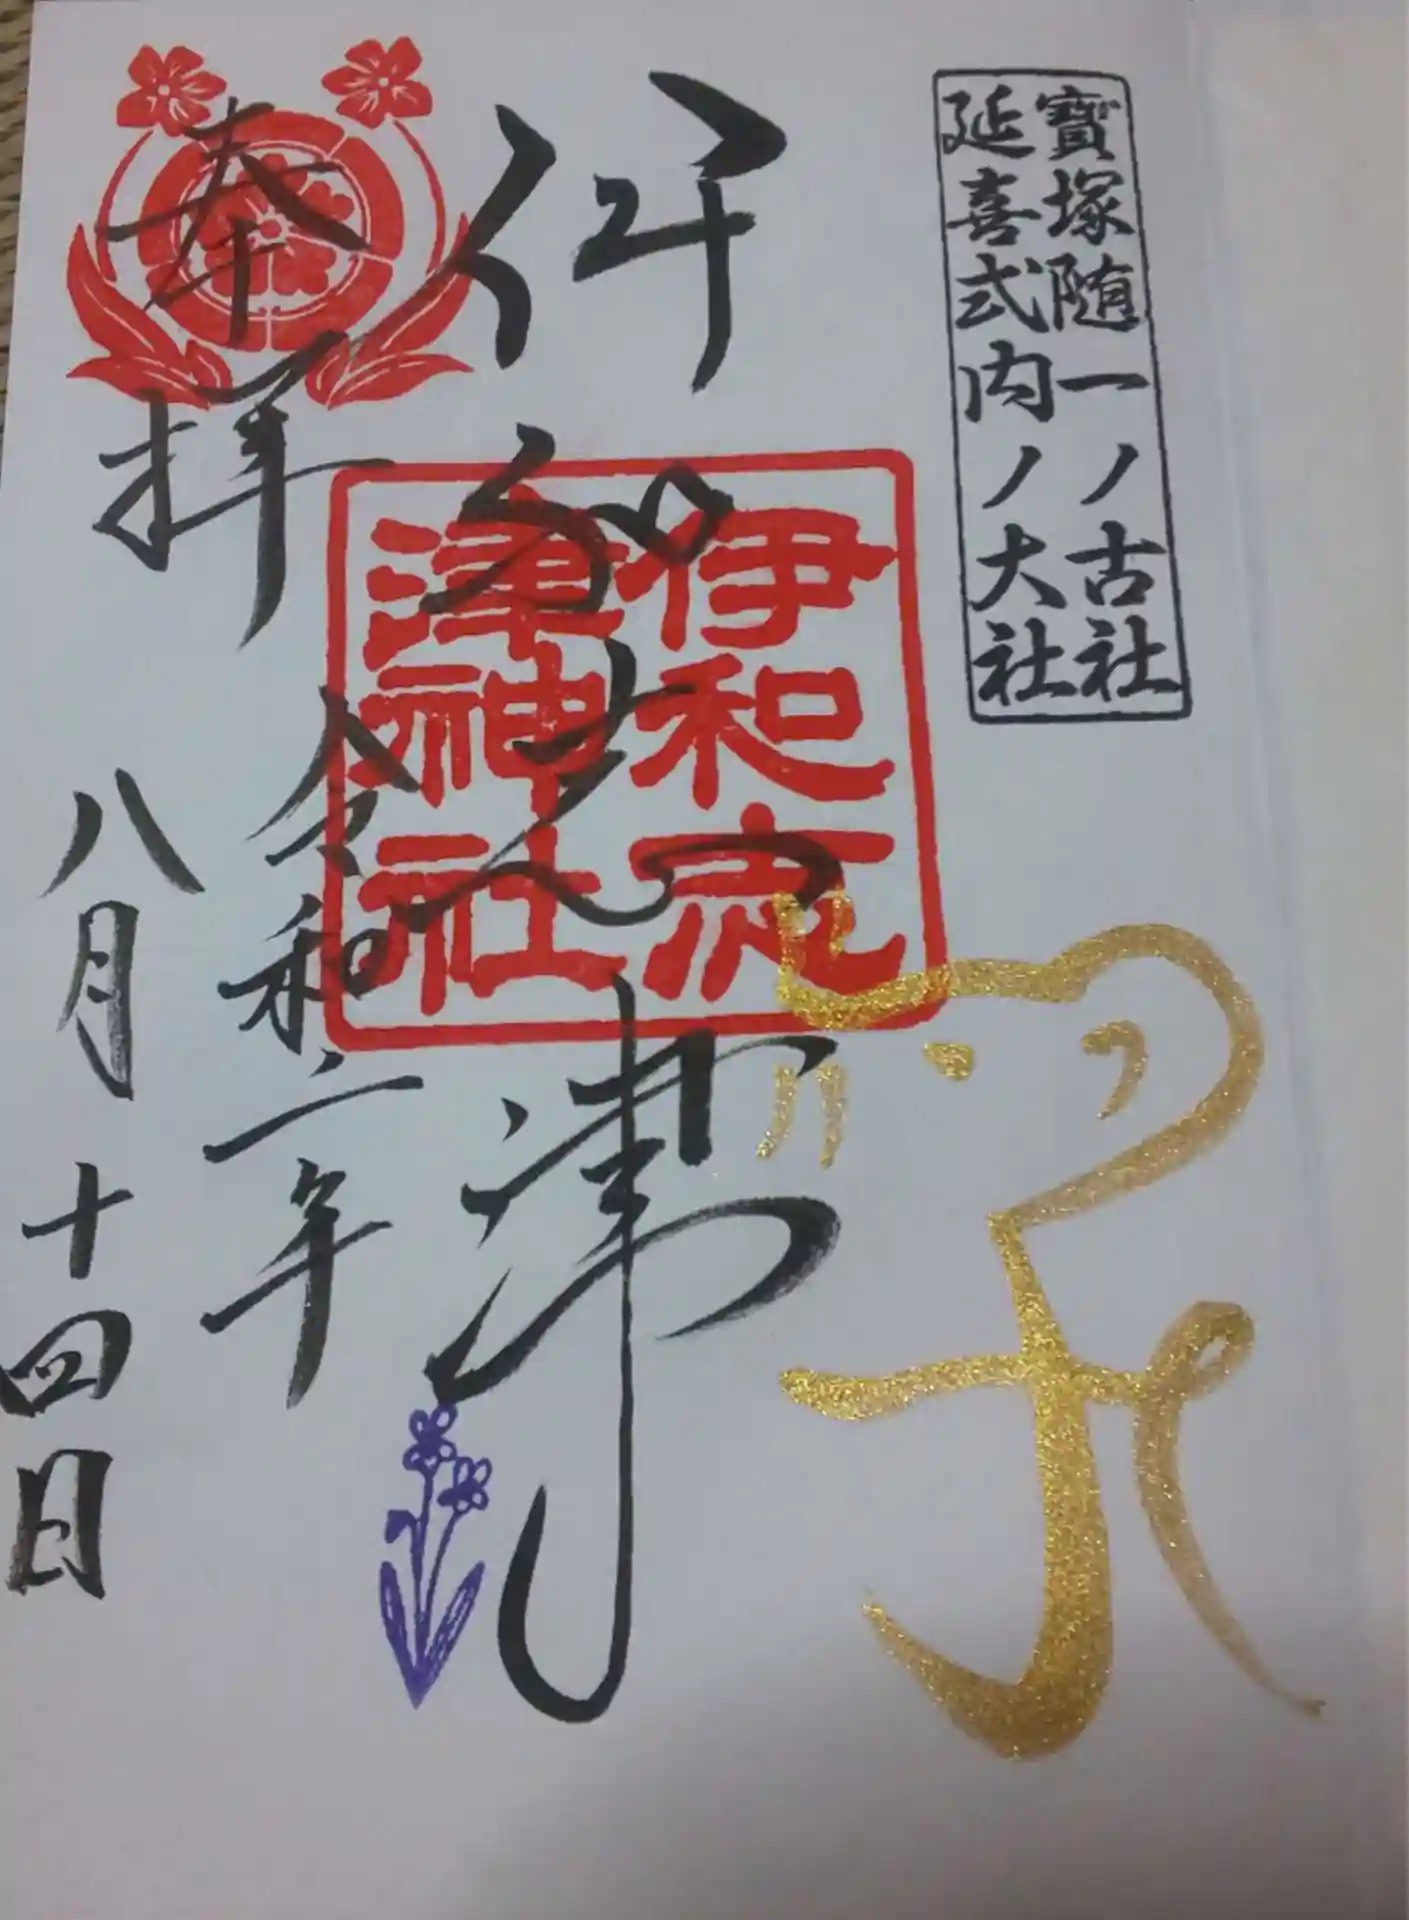 寶塚随一ノ古社
延喜式内ノ大社
伊和志津
伊和志
津神社
奉拝
令和二年
八月十四日